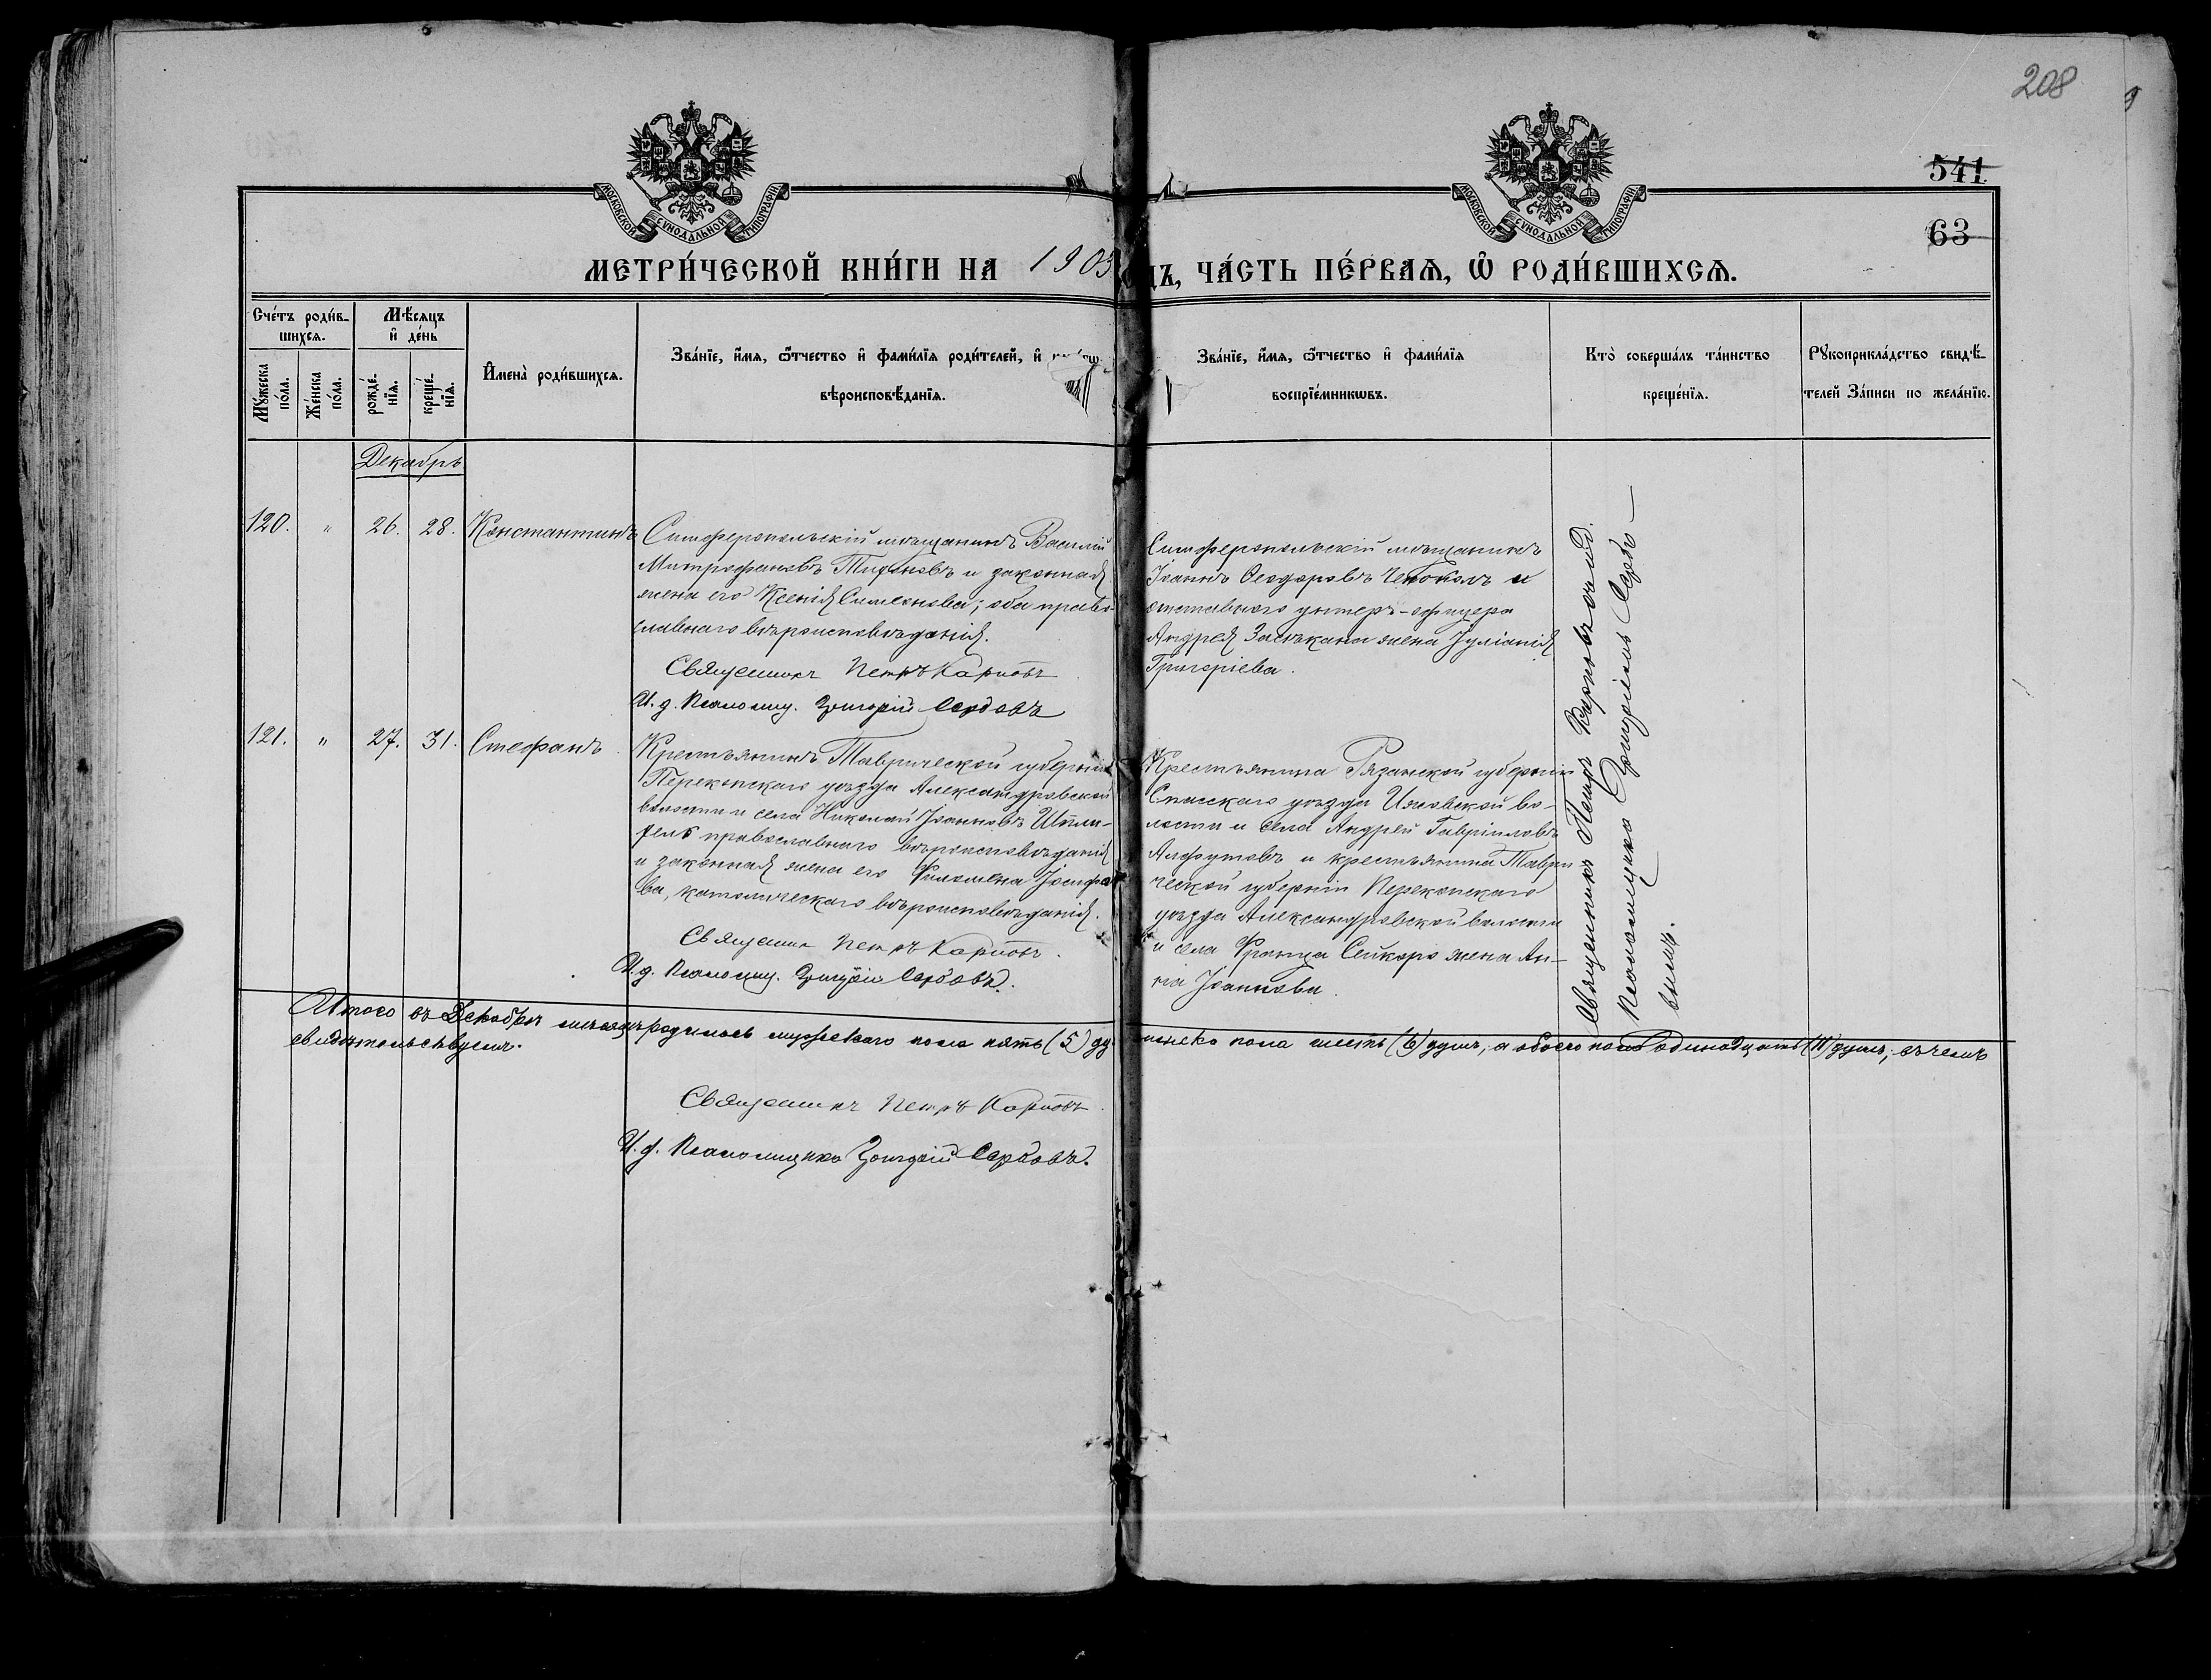 208
541
63
МОСКОВСКОЙ СѴНОДАЛЬНОЙ ТИПОГРАФІИ
МОСКОВСКОЙ СѴНОДАЛЬНОЙ ТИПОГРАФІИ
МЕТРИ́ЧЕСКОЙ КНИ́ГИ НА 1903
ДЪ, ЧА́СТЬ ПЕ́РВАѦ, Ѽ РОДИ́ВШИХСѦ.
Сче́тъ роди́в-
шихсѧ.
Мꙋ́жеска по́ла.
Же́нска по́ла.
Мѣ́сѧцъ
и҆ де́нь
рожде́-
нїѧ.
креще́-
нїѧ.
И҆мена̀ роди́вшихсѧ.
Зва́нїе, и҆́мѧ, ѻ҆́тчество и҆ фами́лїѧ роди́телей, и҆
вѣроисповѣ́данїѧ.
Зва́нїе, и҆́мѧ, ѻ҆́тчество и҆ фами́лїѧ
воспрїе́мникѡвъ.
Кто̀ соверша́лъ та́инство
креще́нїѧ.
Рꙋкоприкла́дство свидѣ́-
телей За́писи по жела́нїю.
Декабрь
120. " 26. 28. Константинъ
Симферопольскій мѣщанинъ Василій
Митрофановъ Тихоновъ и законная
жена его Ксенія Симеонова; оба право-
славнаго вѣроисповѣданія.
Священникъ Петръ Карповъ
И. д. Псаломщ. Григорій Сербовъ
Симферопольскій мѣщанинъ
Іоаннъ Ѳеодоровъ и
отставного унтеръ-офицера
Андрея жена Іуліанія
Григоріева.
121. " 27. 31. Стефанъ
Крестьянинъ Таврической губерніи
Перекопскаго уѣзда Александровской
волости и села Николай Іоанновъ
православнаго вѣроисповѣданія
и законная жена его Филомена Іосифо-
ва, католическаго вѣроисповѣданія.
Священник Петръ Карповъ.
И. д. Псаломщ. Григорій Сербовъ.
Крестьянина Рязанской губерніи
Спасскаго уѣзда Ижевской во-
лости и села Андрей Гавріиловъ
Алфутовъ и крестьянина Таври
ческой губерніи Перекопскаго
уѣзда Александровской волости
и села Франца жена Ан-
на Іоаннова.
Священникъ Петръ Карповъ съ и. д.
Псаломщика Григоріемъ Сербо-
вымъ.
Итого въ Декабрѣ мѣсяцѣ родилось мужескаго пола пять (5) ду женска пола шесть (6) душъ, а обоего пола одинадцать (11) душъ; въ чемъ
свидѣтельствуемъ.
Священникъ Петръ Карповъ.
И. д. Псаломщика Григорій Сербовъ.